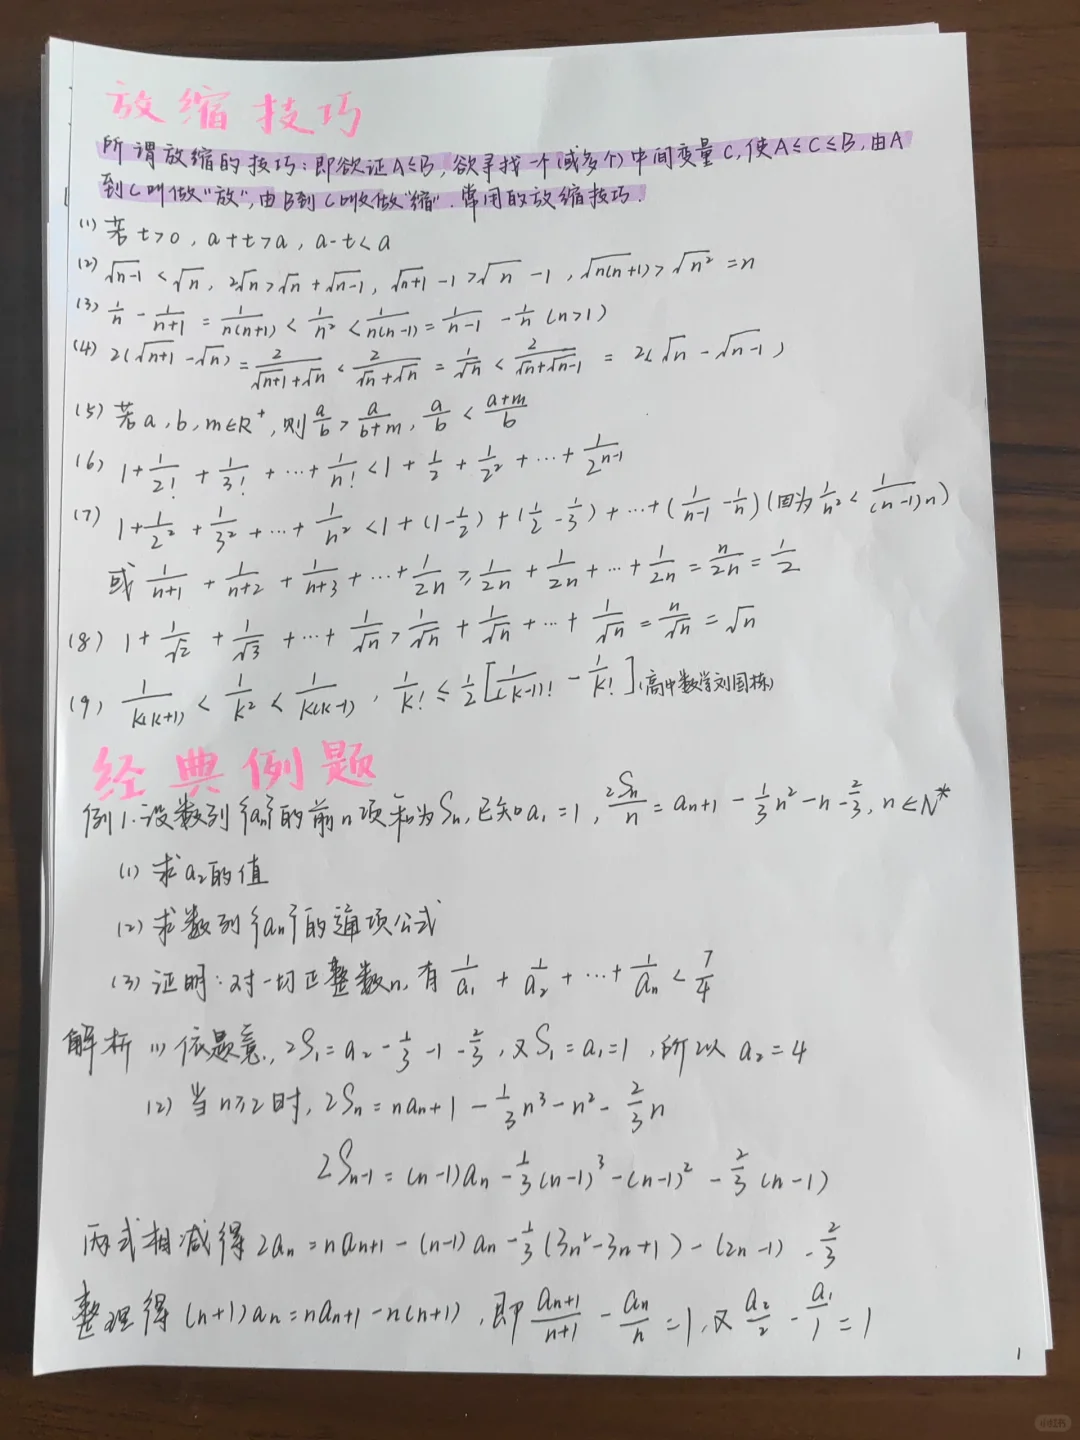 放缩技巧
所谓放缩的技巧:即欲证A≤B,欲寻找一个(或多个)中间变量C,使A≤C≤B,由A
到C叫做"放",由B到C叫做"缩".常用的放缩技巧.
(1) 若t>0, a+t>a, a-t<a
(2) √(n-1) < √n, 2√n > √n + √(n-1), √(n+1) - 1 > √n - 1, √(n(n+1)) > √(n²) = n
(3) 1/n - 1/(n+1) = 1/(n(n+1)) < 1/n² < 1/(n(n-1)) = 1/(n-1) - 1/n (n>1)
(4) 2(√(n+1) - √n) = 2/(√(n+1)+√n) < 2/(√n+√n) = 1/√n < 2/(√n+√(n-1)) = 2(√n - √(n-1))
(5) 若a, b, m∈R⁺, 则 a/b > a/(b+m), a/b < (a+m)/b
(6) 1 + 1/2! + 1/3! + ⋯ + 1/n! < 1 + 1/2 + 1/2² + ⋯ + 1/2ⁿ⁻¹
(7) 1 + 1/2² + 1/3² + ⋯ + 1/n² < 1 + (1-1/2) + (1/2-1/3) + ⋯ + (1/(n-1) - 1/n) (因为 1/n² < 1/((n-1)n))
或 1/(n+1) + 1/(n+2) + 1/(n+3) + ⋯ + 1/2n ≥ 1/2n + 1/2n + ⋯ + 1/2n = n/2n = 1/2
(8) 1 + 1/√2 + 1/√3 + ⋯ + 1/√n > 1/√n + 1/√n + ⋯ + 1/√n = n/√n = √n
(9) 1/(k(k+1)) < 1/k² < 1/(k(k-1)), 1/k! ≤ 1/2[1/(k-1)! - 1/k!] (高中数学刘国栋)
经典例题
例1.设数列{an}的前n项和为Sn,已知a₁=1, 2Sn/n = an+1 - 1/3n² - n - 2/3, n∈N*
(1) 求a₂的值
(2) 求数列{an}的通项公式
(3) 证明:对一切正整数n,有 1/a₁ + 1/a₂ + ⋯ + 1/an < 7/4
解析 (1) 依题意, 2S₁ = a₂ - 1/3 - 1 - 2/3, 又S₁ = a₁ = 1, 所以 a₂ = 4
(2) 当n≥2时, 2Sn = nan+1 - 1/3n³ - n² - 2/3n
2Sn-1 = (n-1)an - 1/3(n-1)³ - (n-1)² - 2/3(n-1)
两式相减得 2an = nan+1 - (n-1)an - 1/3(3n²-3n+1) - (2n-1) - 2/3
整理得 (n+1)an = nan+1 - n(n+1), 即 an+1/n+1 - an/n = 1, 又 a₂/2 - a₁/1 = 1
1
小红书